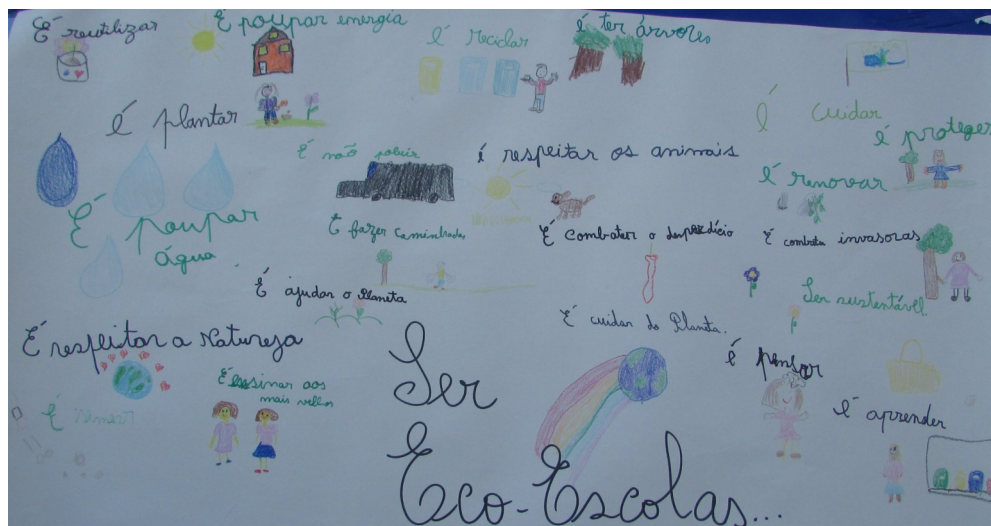 É reutilizar
É poupar energia
é reciclar
é ter árvores
é plantar
é cuidar
é proteger
É não poluir
é respeitar os animais
é renovar
É poupar
água
É fazer caminhadas
É combater o desperdício
É combater invasoras
É ajudar o Planeta
Ser sustentável.
É cuidar do Planeta.
É respeitar a Natureza
é pensar
É ensinar aos
mais velhos
É
é aprender
Ser
Eco-Escolas...